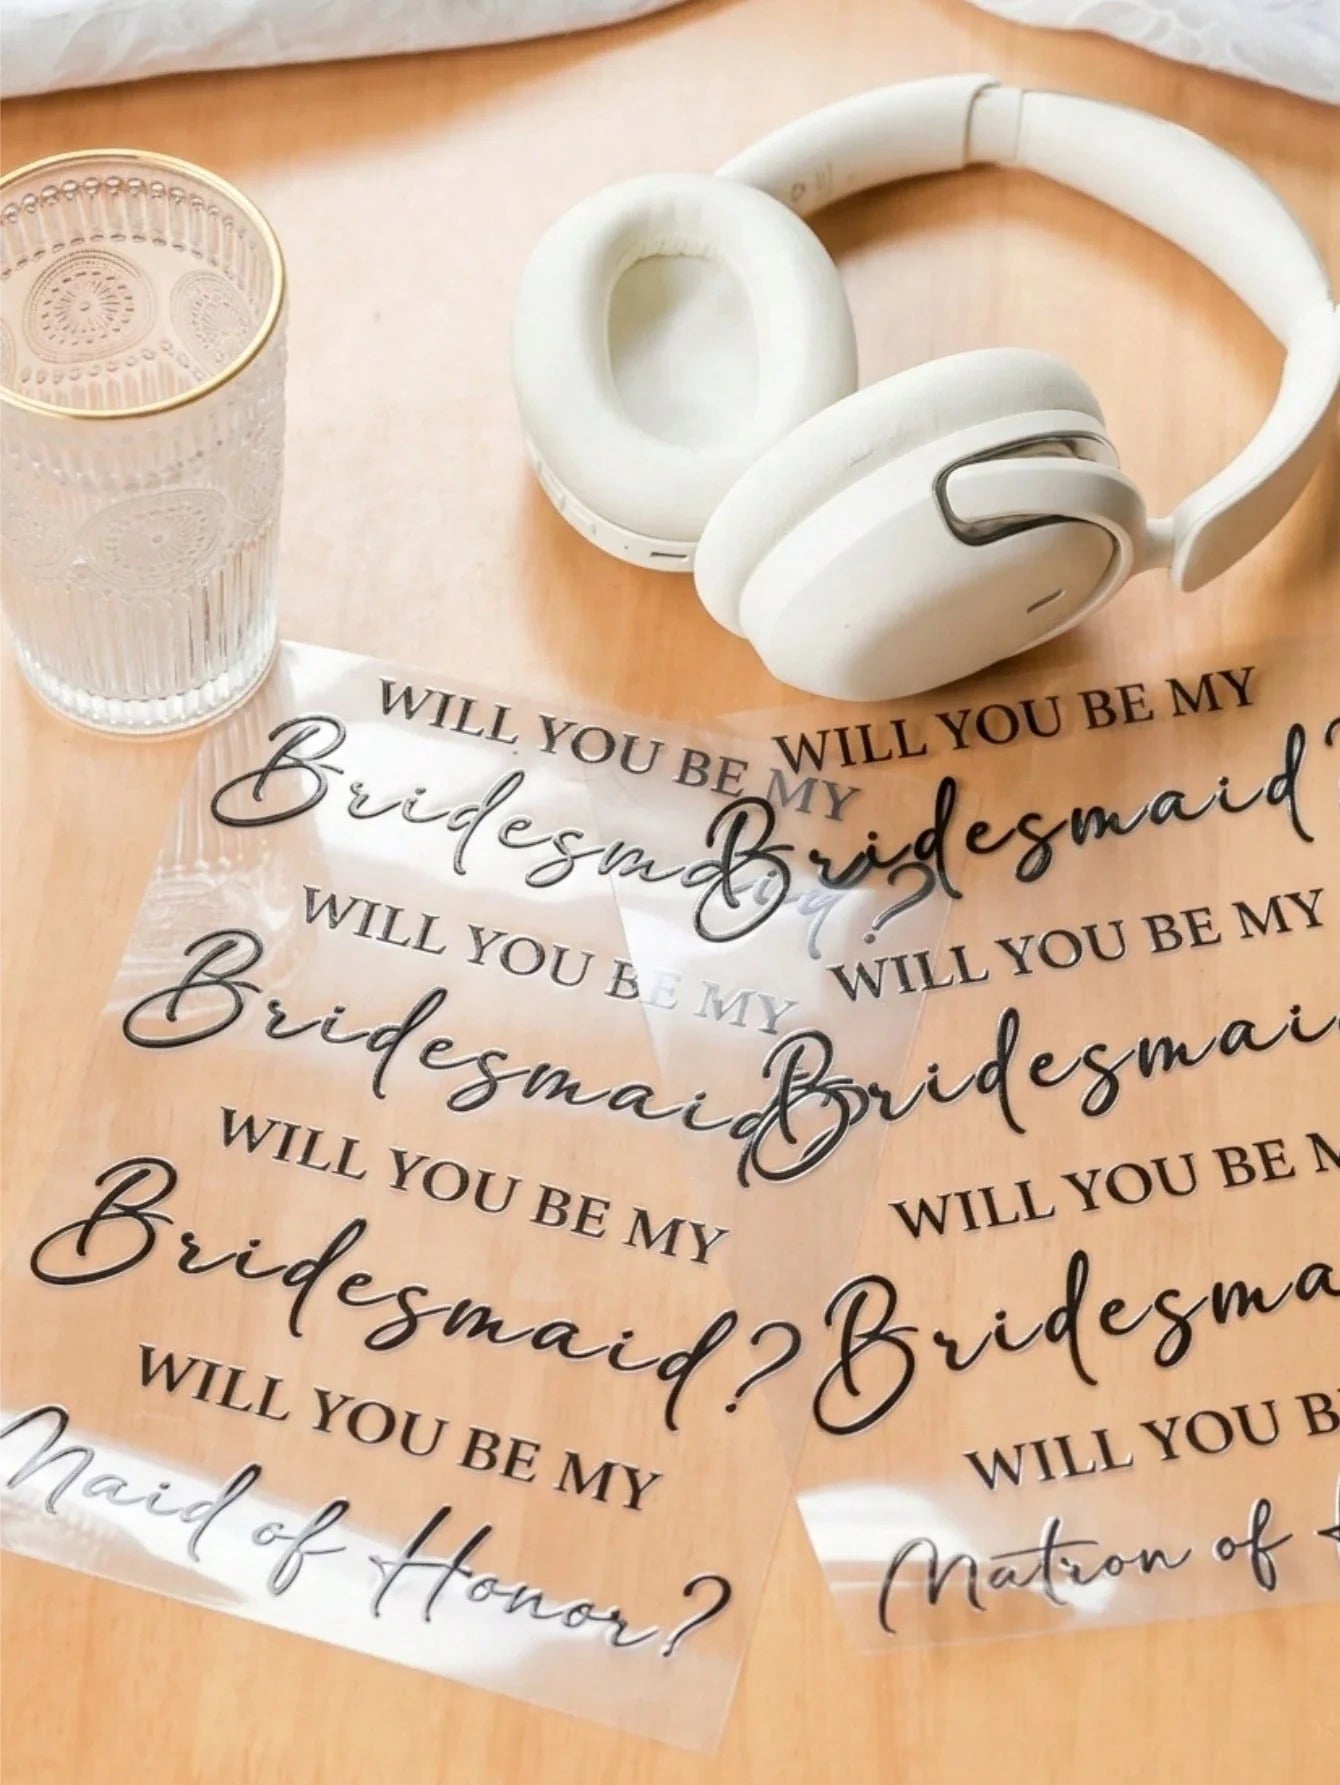 WILL YOU BE MY
Bridesmaid?
WILL YOU BE MY
Bridesmaid
WILL YOU BE MY
Bridesmaid?
WILL YOU BE MY
Maid of Honor?
WILL YOU BE MY
Bridesmaid?
WILL YOU BE MY
Bridesmai
WILL YOU BE
Bridesma
WILL YOU B
Matron of